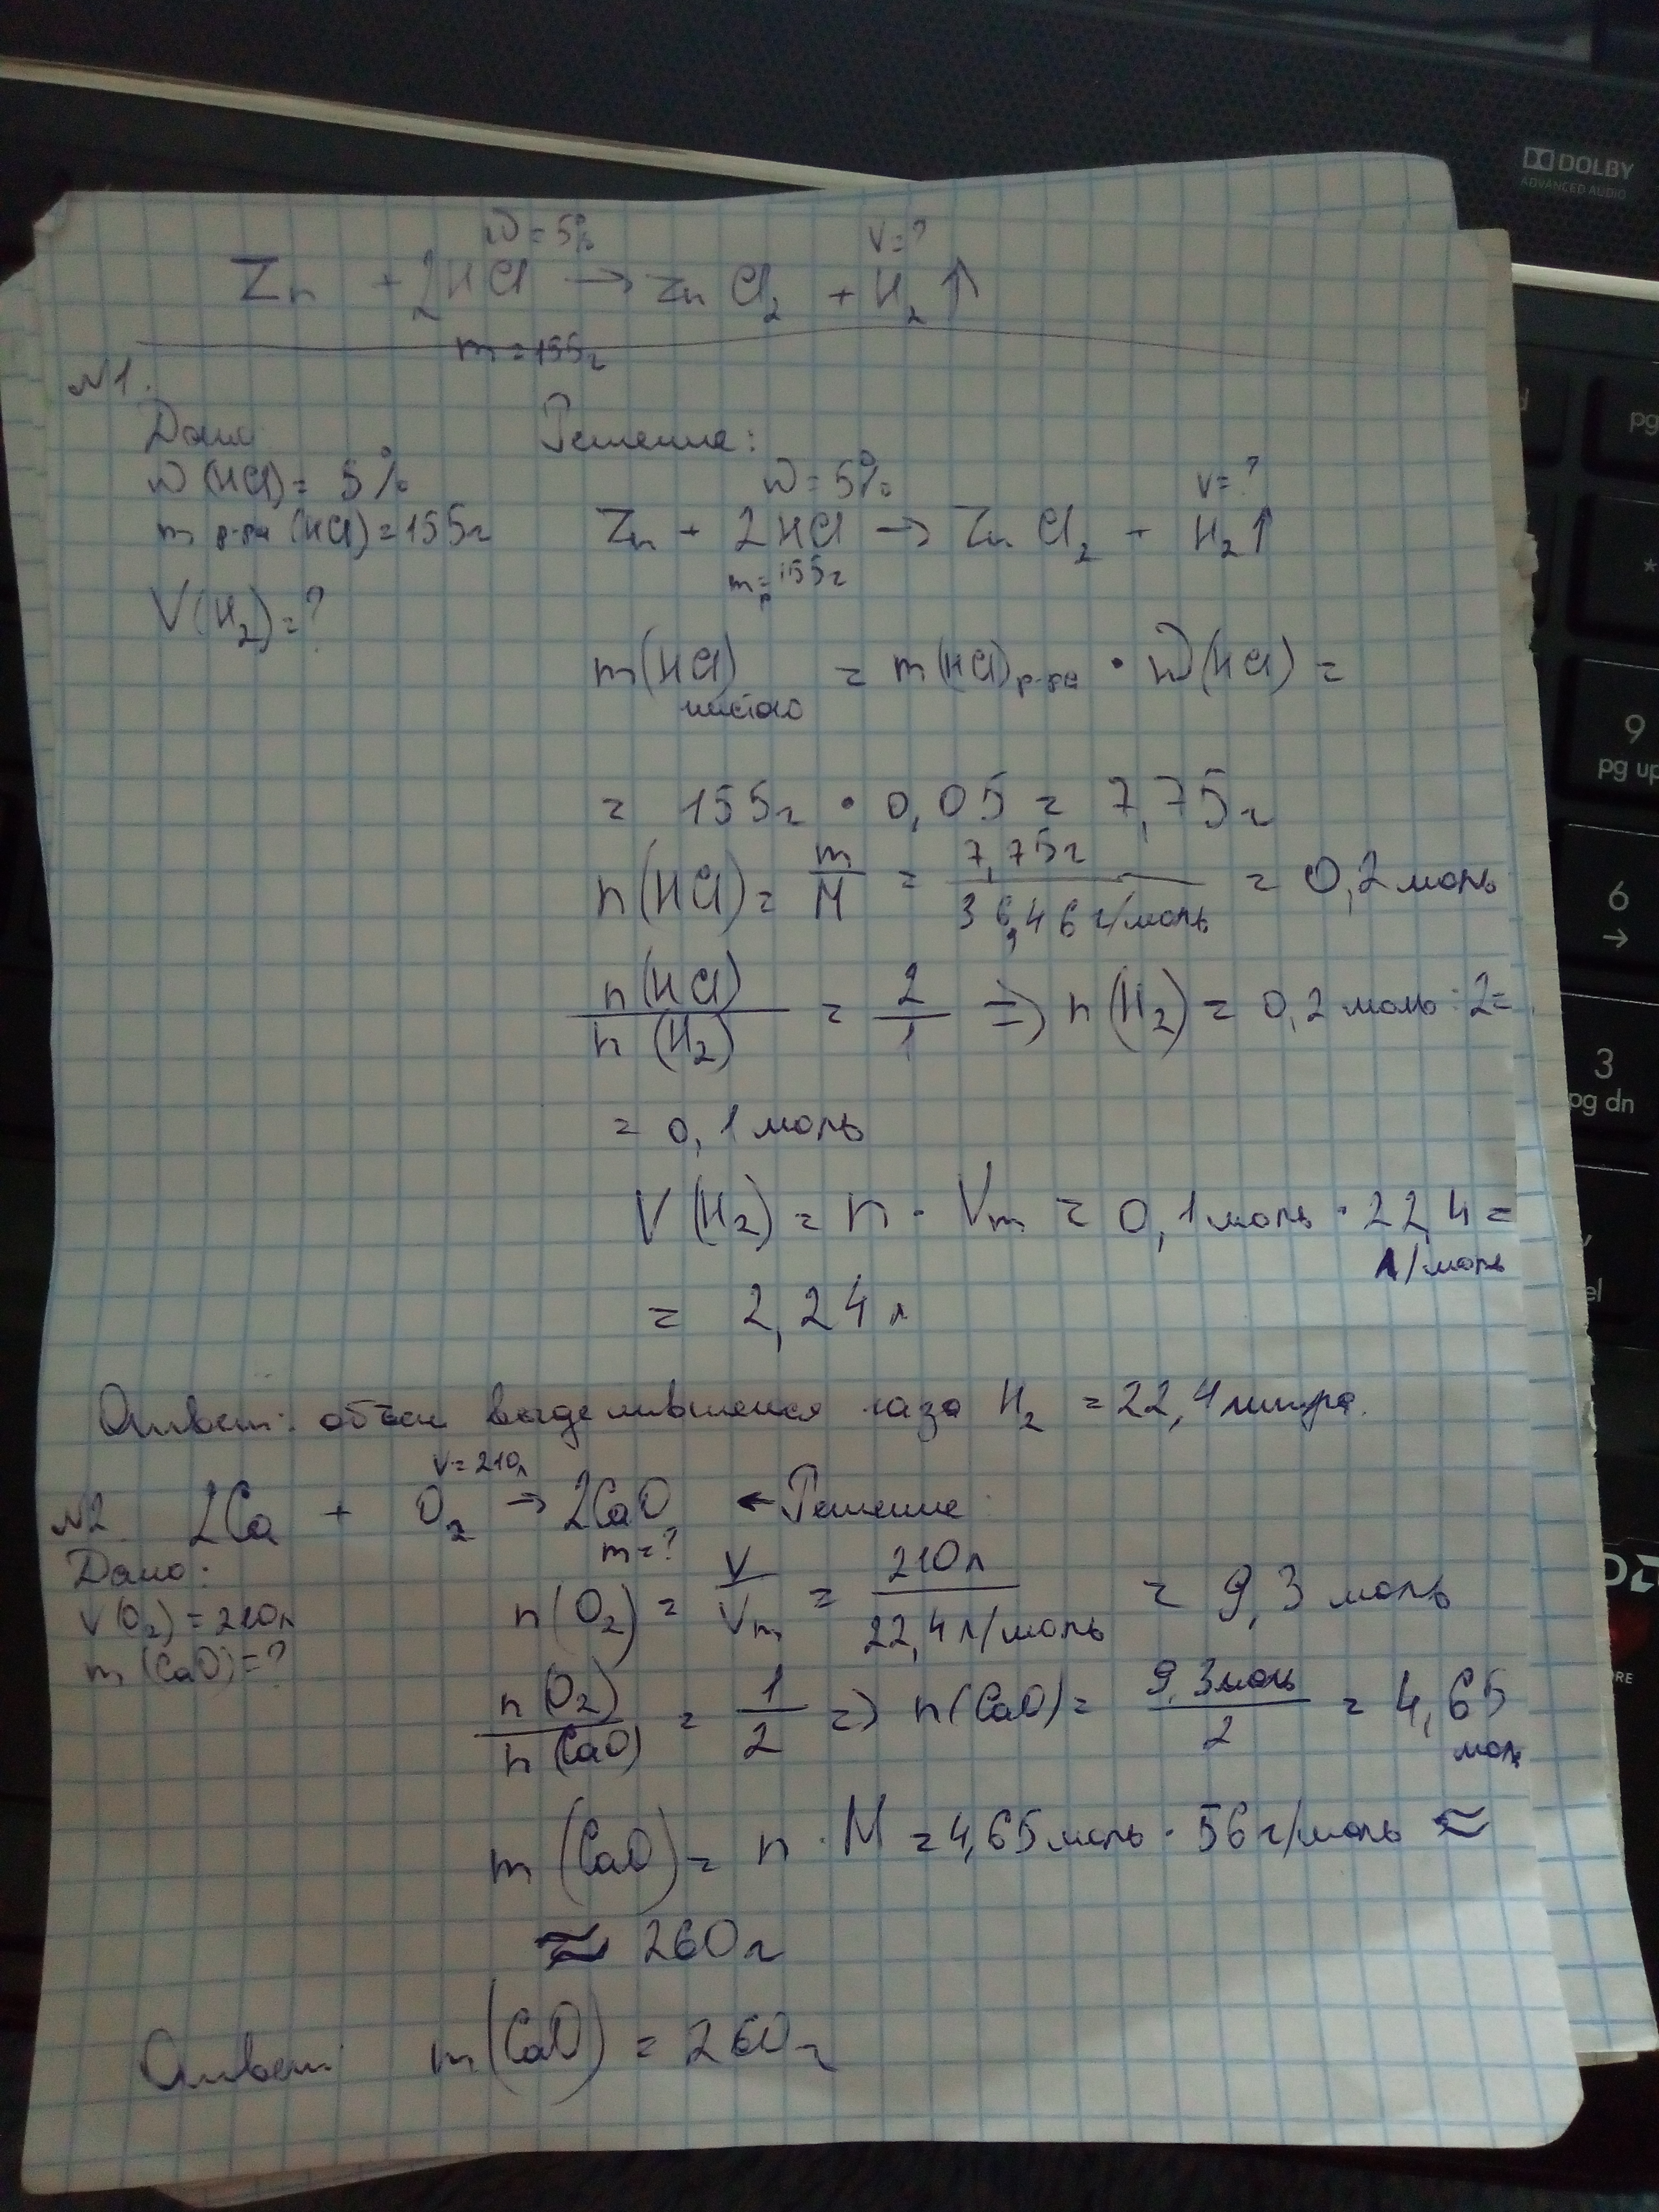 DOLBY
ADVANCED AUDIO
W = 5% V = ?
Zn + 2HCl → ZnCl₂ + H₂ ↑
m = 155г
N1.
Дано Решение:
W (HCl) = 5% W = 5% V = ?
m р-ра (HCl) = 155г Zn + 2HCl → ZnCl₂ + H₂ ↑
mр = 155г
V(H₂) = ?
m(HCl) чистого = m(HCl) р-ра • W(HCl) =
= 155г • 0,05 = 7,75г
n(HCl) = m/M = 7,75г/36,46 г/моль = 0,2 моль
n(HCl)/n(H₂) = 2/1 => n(H₂) = 0,2 моль : 2 =
= 0,1 моль
V(H₂) = n · Vm = 0,1 моль · 22,4 =
л/моль
= 2,24 л
Ответ: объём выделившегося газа H₂ = 22,4 литра.
V = 210л
N2. 2Ca + O₂ → 2CaO ← Решение:
m = ?
Дано:
V(O₂) = 210л n(O₂) = V/Vm = 210л/22,4 л/моль = 9,3 моль
m (CaO) = ?
n(O₂)/n(CaO) = 1/2 => n(CaO) = 9,3моль/2 = 4,65
моль
m (CaO) = n · M = 4,65 моль · 56 г/моль ≈
≈ 260г
Ответ: m(CaO) = 260г
pg
*
9
pg up
6
→
3
pg dn
el